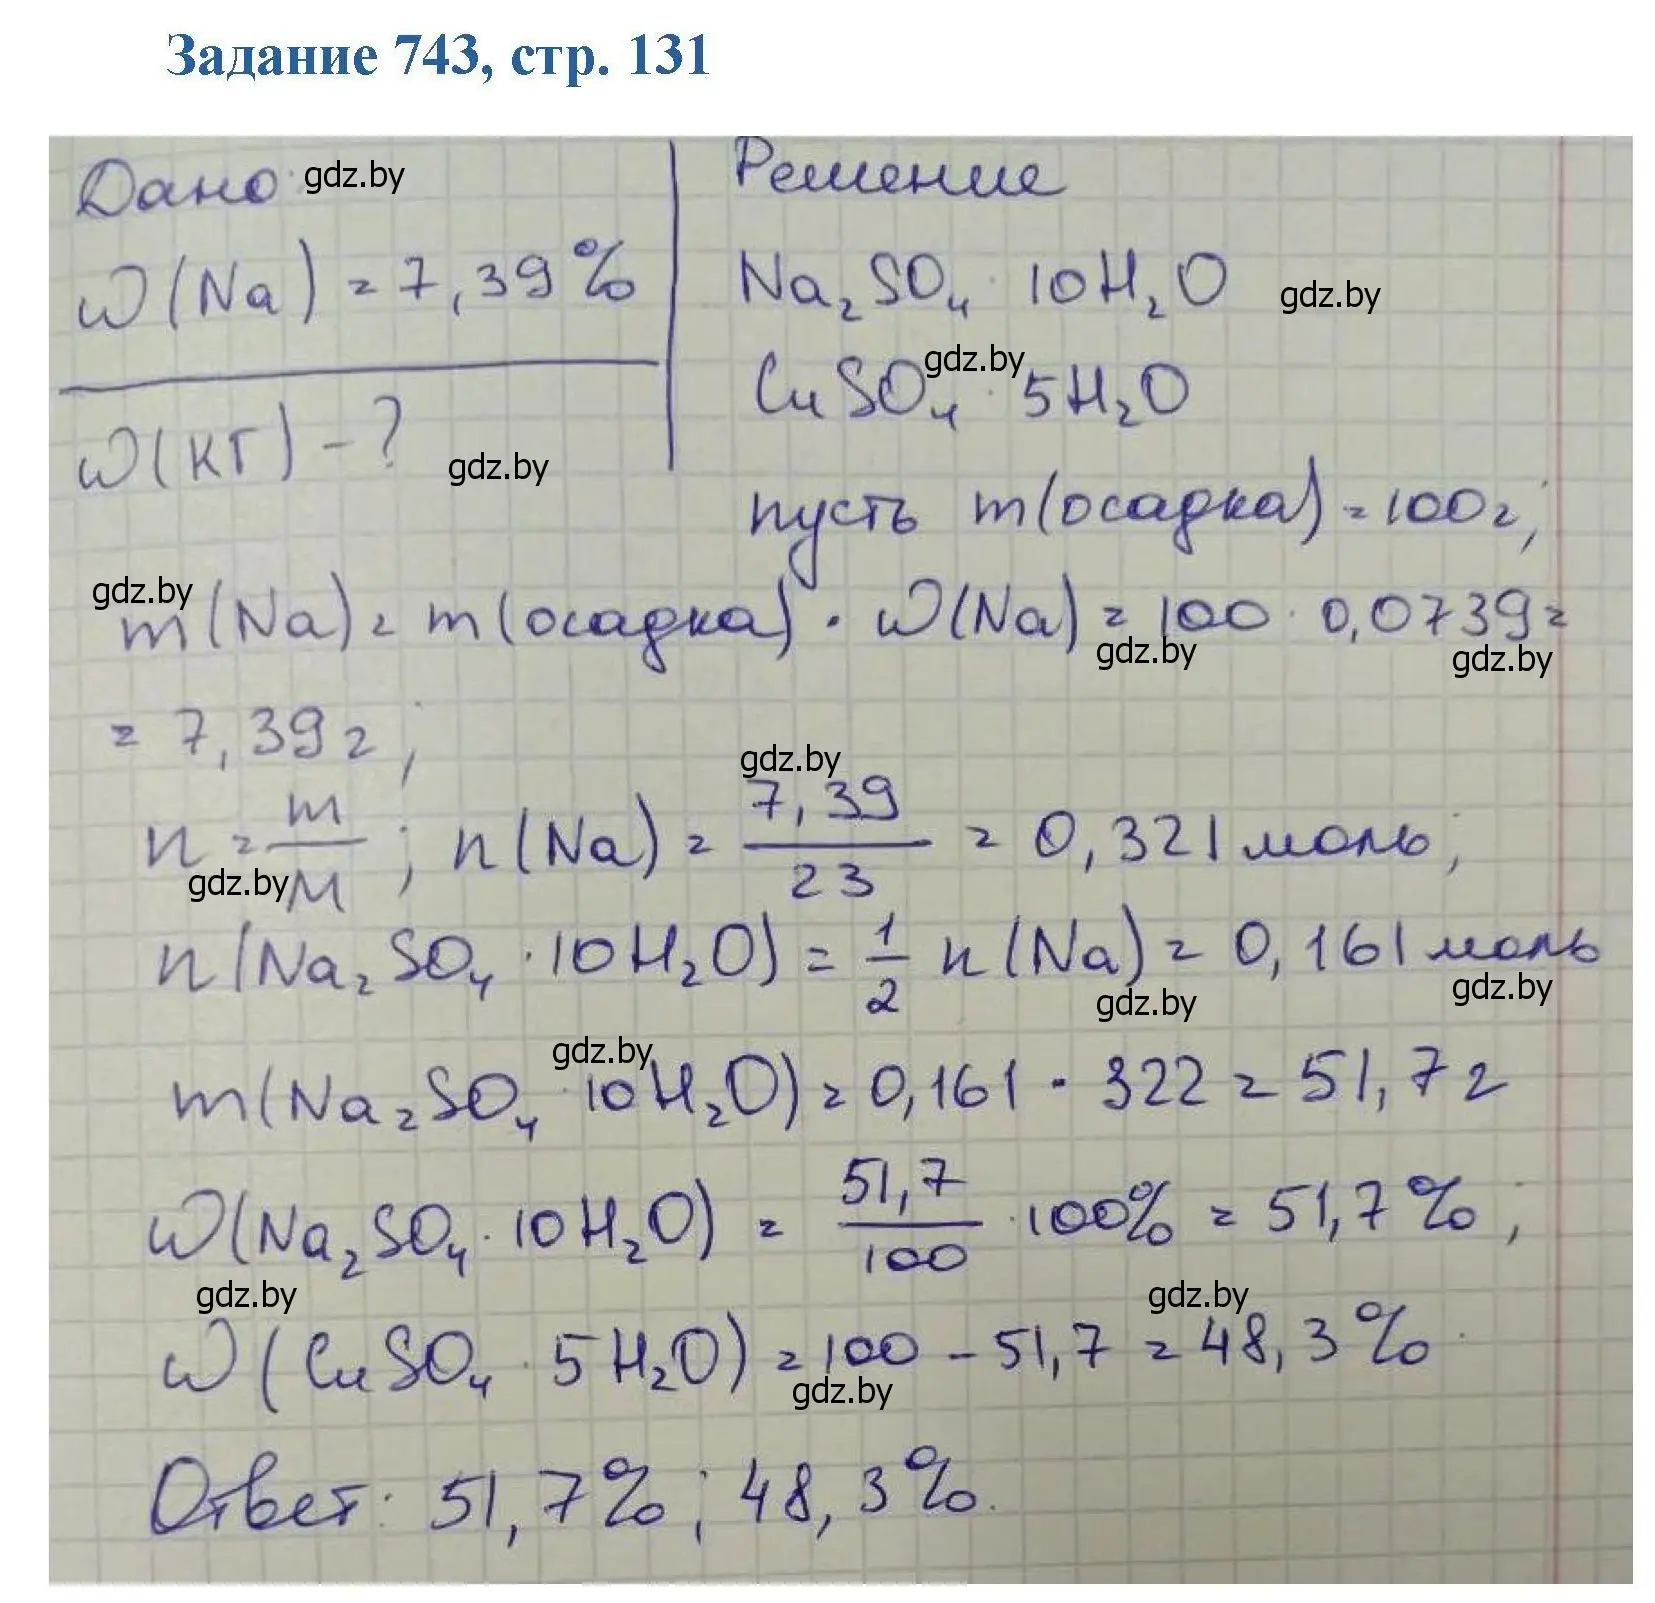 Задание 743, стр. 131
Дано gdz.by
Решение
ω(Na) = 7,39%
Na₂SO₄ · 10H₂O gdz.by
gdz.by
CuSO₄ · 5H₂O
ω(кг) - ? gdz.by
пусть m(осадка) = 100г;
gdz.by
m(Na) = m(осадка) · ω(Na) = 100 · 0,0739 =
gdz.by gdz.by
= 7,39г;
gdz.by
n = m/M; n(Na) = 7,39/23 = 0,321 моль;
gdz.by
n(Na₂SO₄ · 10H₂O) = 1/2 n(Na) = 0,161 моль
gdz.by gdz.by
gdz.by
m(Na₂SO₄ · 10H₂O) = 0,161 · 322 = 51,7г
ω(Na₂SO₄ · 10H₂O) = 51,7/100 · 100% = 51,7%;
gdz.by gdz.by
ω(CuSO₄ · 5H₂O) = 100 - 51,7 = 48,3%
gdz.by
Ответ: 51,7%; 48,3%.